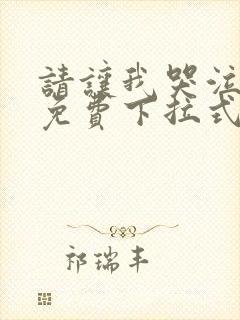 請讓我哭泣
免費下拉式
祁瑞丰